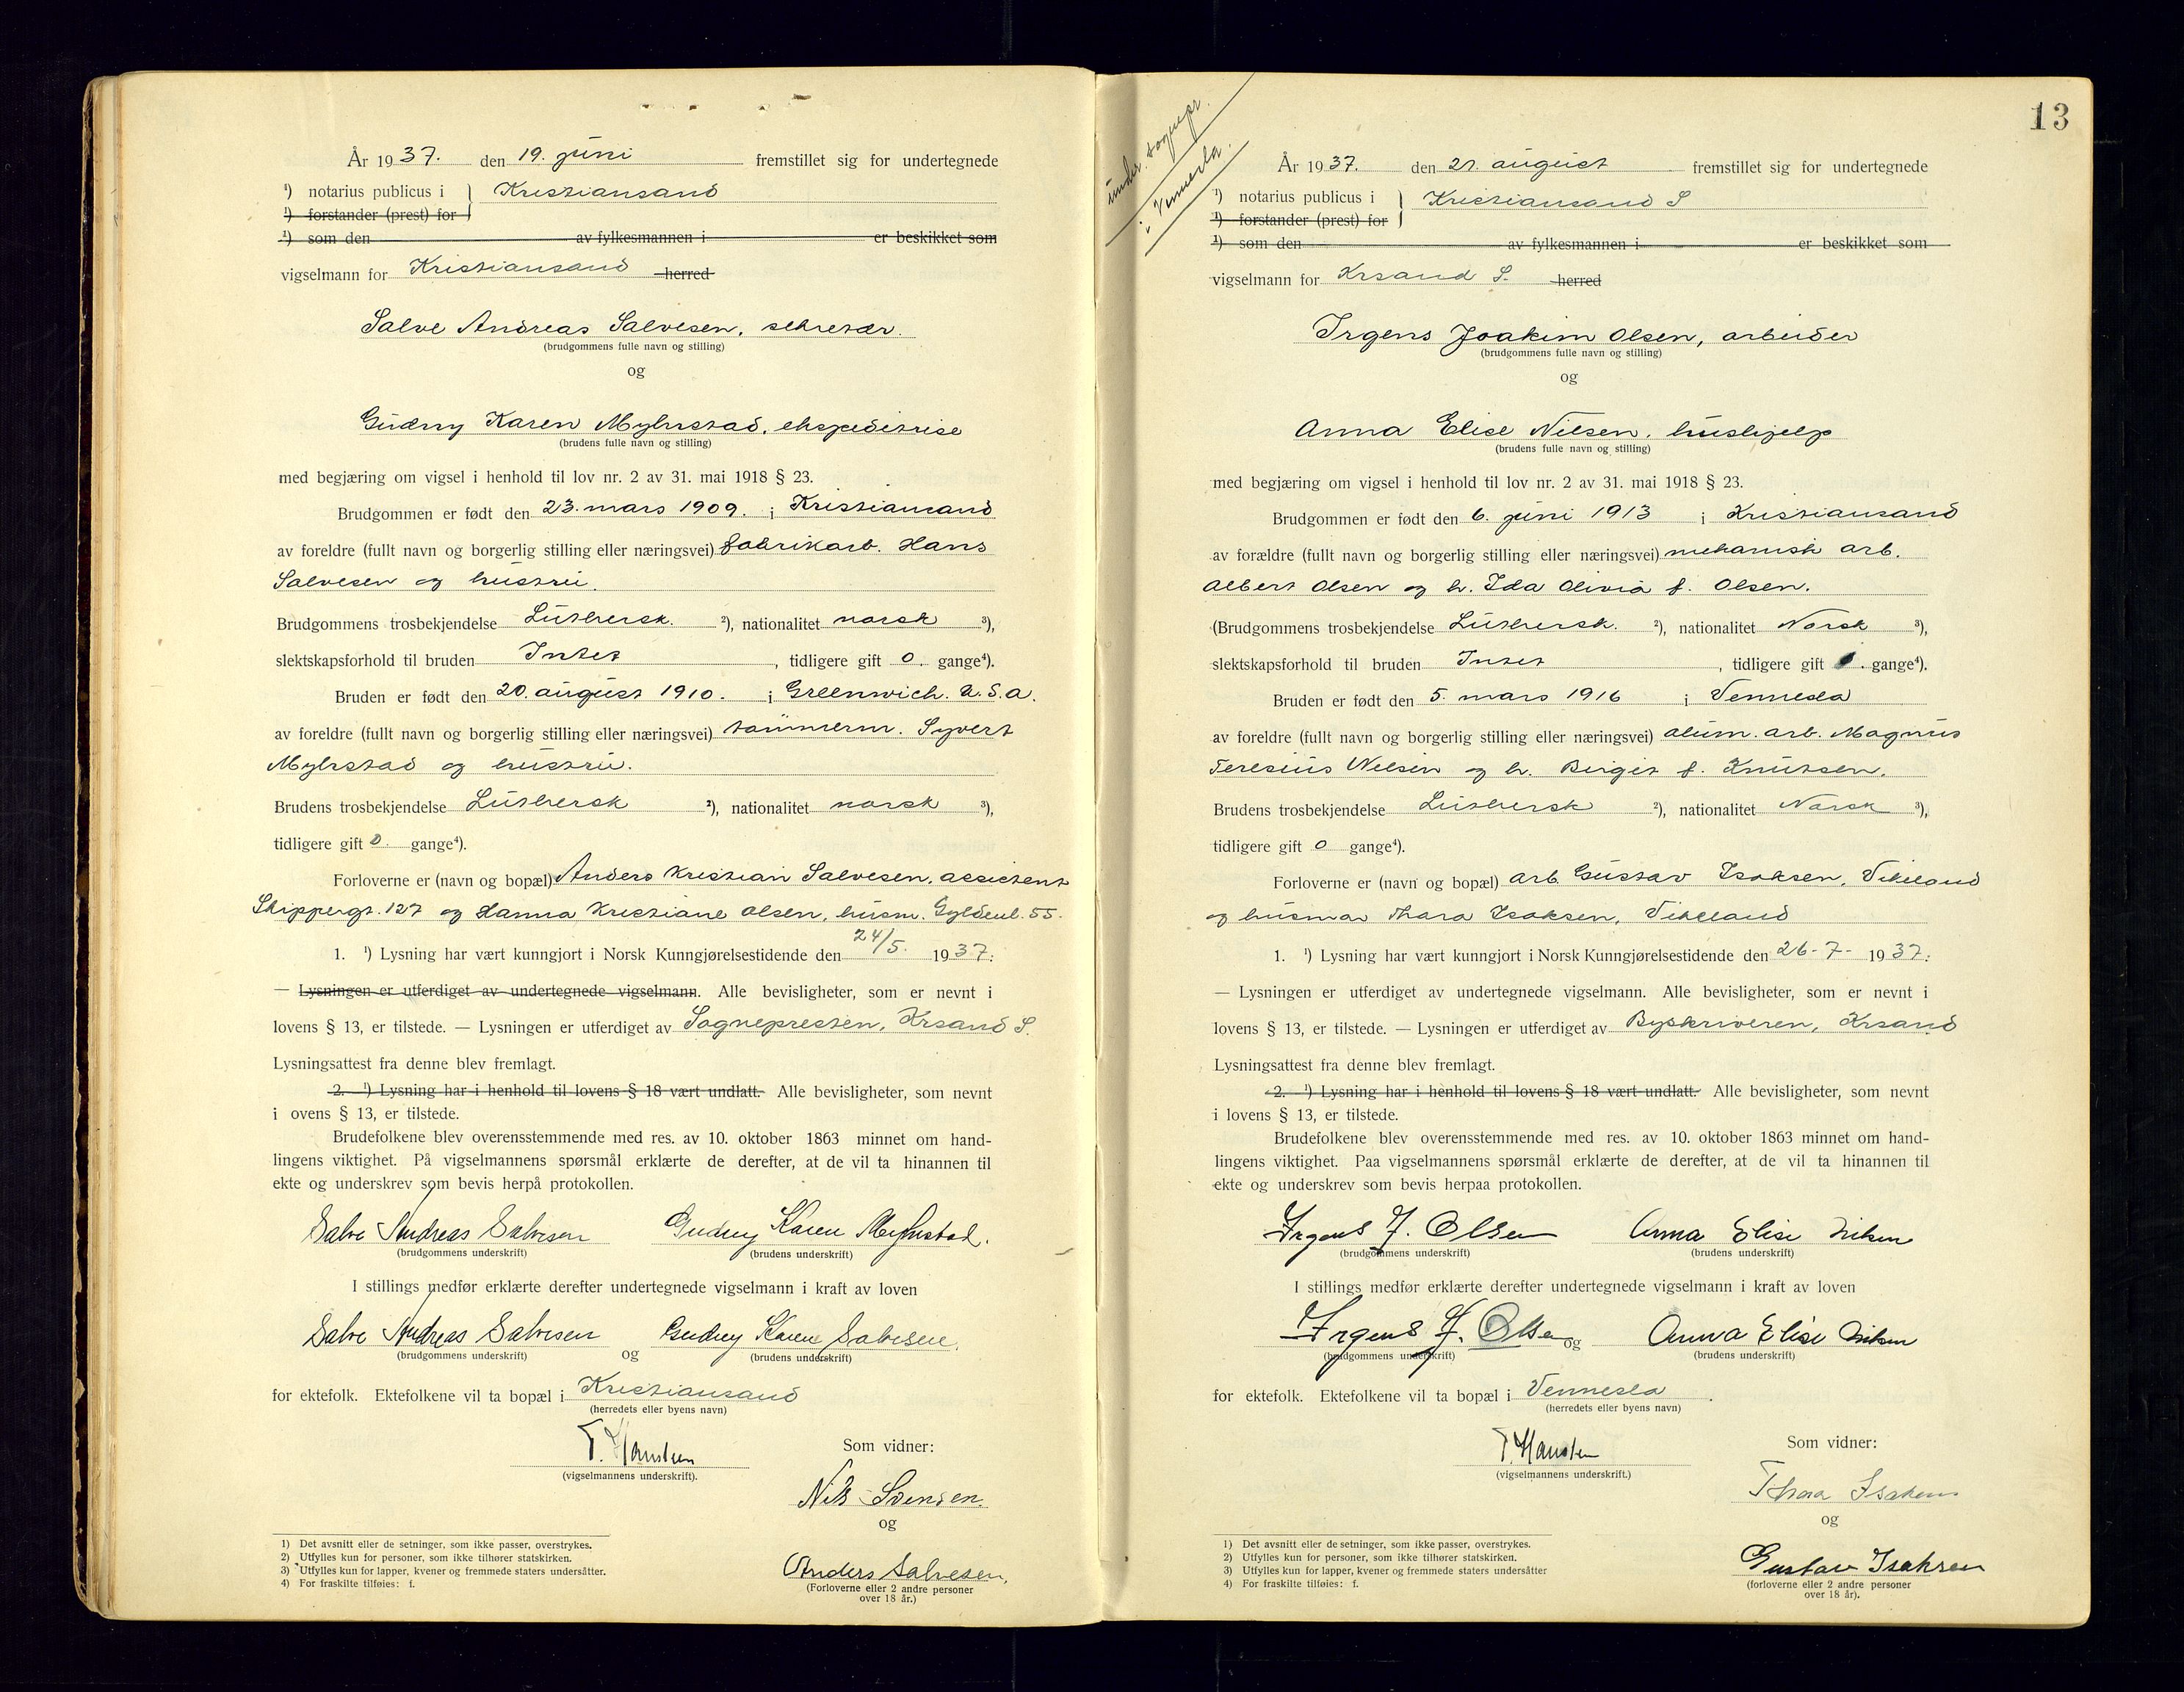 År 1937. den 19. juni fremstillet sig for undertegnede
¹) notarius publicus i } Kristiansand
¹) forstander (prest) for
¹) som den av fylkesmannen i er beskikket som
vigselmann for Kristiansand herred
Salve Andreas Salvesen, sekretær.
(brudgommens fulle navn og stilling)
og
Gudny Karen Myhrstad, ekspeditrise
(brudens fulle navn og stilling)
med begjæring om vigsel i henhold til lov nr. 2 av 31. mai 1918 § 23.
Brudgommen er født den 23. mars 1909. i Kristiansand
av foreldre (fullt navn og borgerlig stilling eller næringsvei) fabrikarb. Hans
Salvesen og hustru.
Brudgommens trosbekjendelse Luthersk. ²), nationalitet norsk ³),
slektskapsforhold til bruden Intet , tidligere gift 0. gange⁴).
Bruden er født den 20. august 1910. i Greenwich. U.S.A.
av foreldre (fullt navn og borgerlig stilling eller næringsvei) tømmerm. Syvert
Myhrstad og hustru.
Brudens trosbekjendelse Luthersk ²), nationalitet norsk ³),
tidligere gift 0. gange⁴).
Forloverne er (navn og bopæl) Anders Kristian Salvesen, assistent
Skippergt. 127 og Hanna Kristiane Olsen, husm. Gyldenl. 55.
1. ¹) Lysning har vært kunngjort i Norsk Kunngjørelsestidende den 24/5. 1937.:
— Lysningen er utferdiget av undertegnede vigselmann. Alle bevisligheter, som er nevnt i
lovens § 13, er tilstede. — Lysningen er utferdiget av Sognepresten, Krsand S.
Lysningsattest fra denne blev fremlagt.
2. ¹) Lysning har i henhold til lovens § 18 vært undlatt. Alle bevisligheter, som nevnt
i ovens § 13, er tilstede.
Brudefolkene blev overensstemmende med res. av 10. oktober 1863 minnet om hand-
lingens viktighet. På vigselmannens spørsmål erklærte de derefter, at de vil ta hinannen til
ekte og underskrev som bevis herpå protokollen.
Salve Andreas Salvesen Gudny Karen Myhrstad.
(brudgommens underskrift) (brudens underskrift)
I stillings medfør erklærte derefter undertegnede vigselmann i kraft av loven
Salve Andreas Salvesen og Gudny Karen Salvesen.
(brudgommens underskrift) (brudens underskrift)
for ektefolk. Ektefolkene vil ta bopæl i Kristiansand
(herredets eller byens navn)
T. Hansteen
(vigselmannens underskrift).
Som vidner:
Nils Svensen
og
Anders Salvesen.
(Forloverne eller 2 andre personer
over 18 år.)
1) Det avsnitt eller de setninger, som ikke passer, overstrykes.
2) Utfylles kun for personer, som ikke tilhører statskirken.
3) Utfylles kun for lapper, kvener og fremmede staters undersåtter.
4) For fraskilte tilføies: f.
13
under sognepr.
i Vennesla.
År 1937. den 21. august fremstillet sig for undertegnede
¹) notarius publicus i } Kristiansand S
¹) forstander (prest) for
¹) som den av fylkesmannen i er beskikket som
vigselmann for Krsand S. herred
Irgens Joakim Olsen, arbeider
(brudgommens fulle navn og stilling)
og
Anna Elise Nilsen, hushjelp
(brudens fulle navn og stilling)
med begjæring om vigsel i henhold til lov nr. 2 av 31. mai 1918 § 23.
Brudgommen er født den 6. juni 1913 i Kristiansand
av forældre (fullt navn og borgerlig stilling eller næringsvei) mekanisk arb.
Albert Olsen og h. Ida Olivia f. Olsen.
(Brudgommens trosbekjendelse Luthersk. ²), nationalitet Norsk ³),
slektskapsforhold til bruden Intet , tidligere gift 0. gange⁴).
Bruden er født den 5. mars 1916 i Vennesla
av foreldre (fullt navn og borgerlig stilling eller næringsvei) alum. arb. Magnus
Teresius Nilsen og h. Birgit f. Knutsen.
Brudens trosbekjendelse Luthersk ²), nationalitet Norsk ³),
tidligere gift 0 gange⁴).
Forloverne er (navn og bopæl) arb. Gustav Isaksen, Vikeland
og husmor Thora Isaksen, Vikeland
1. ¹) Lysning har vært kunngjort i Norsk Kunngjørelsestidende den 26-7- 1937.:
— Lysningen er utferdiget av undertegnede vigselmann. Alle bevisligheter, som er nevnt i
lovens § 13, er tilstede. — Lysningen er utferdiget av Byskriveren, Krsand
Lysningsattest fra denne blev fremlagt.
2. ¹) Lysning har i henhold til lovens § 18 vært undlatt. Alle bevisligheter, som nevnt
i lovens § 13, er tilstede.
Brudefolkene blev overensstemmende med res. av 10. oktober 1863 minnet om hand-
lingens viktighet. Paa vigselmannens spørsmål erklærte de derefter, at de vil ta hinannen til
ekte og underskrev som bevis herpaa protokollen.
Irgens J. Olsen Anna Elise Nilsen
(brudgommens underskrift) (brudens underskrift)
I stillings medfør erklærte derefter undertegnede vigselmann i kraft av loven
Irgens J. Olsen og Anna Elise Nilsen
(brudgommens underskrift) (brudens underskrift)
for ektefolk. Ektefolkene vil ta bopæl i Vennesla .
(herredets eller byens navn)
T. Hansteen
(vigselmannens underskrift.)
Som vidner:
Thora Isaksen
og
Gustav Isaksen
(forloverne eller 2 andre personer
over 18 år).
1) Det avsnitt eller de setninger, som ikke passer, overstrykes.
2) Utfylles kun for personer, som ikke tilhører statskirken.
3) Utfylles kun for lapper, kvener og fremmede staters undersåtter
4) For fraskilte tilføies: f.